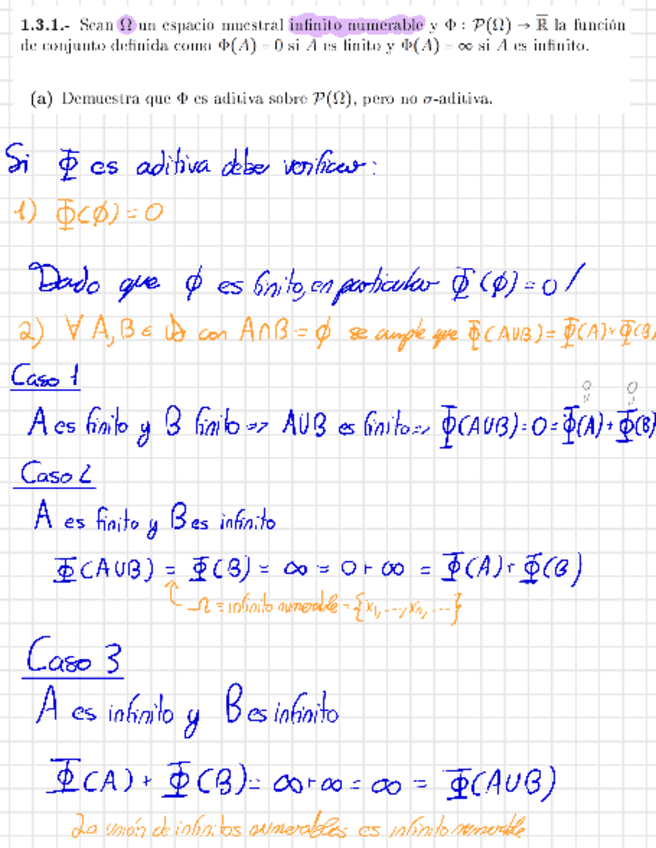 1.3.1.- Sean Ω un espacio muestral infinito numerable y Φ : P(Ω) → ℝ̅ la función
de conjunto definida como Φ(A) = 0 si A es finito y Φ(A) = ∞ si A es infinito.
(a) Demuestra que Φ es aditiva sobre P(Ω), pero no σ-aditiva.
Si Φ es aditiva debe verificar:
1) Φ(∅) = 0
Dado que ∅ es finito, en particular Φ(∅) = 0 /
2) ∀ A, B ∈ con A∩B = ∅ se cumple que Φ(A∪B) = Φ(A) + Φ(B)
Caso 1
0 0
A es finito y B finito => A∪B es finito => Φ(A∪B) = 0 = Φ(A) + Φ(B)
Caso 2
A es finito y B es infinito
Φ(A∪B) = Φ(B) = ∞ = 0 + ∞ = Φ(A) + Φ(B)
Ω = infinito numerable = {x₁, ..., xₙ, ...}
Caso 3
A es infinito y B es infinito
Φ(A) + Φ(B) = ∞ + ∞ = ∞ = Φ(A∪B)
La unión de infinitos numerables es infinito numerable